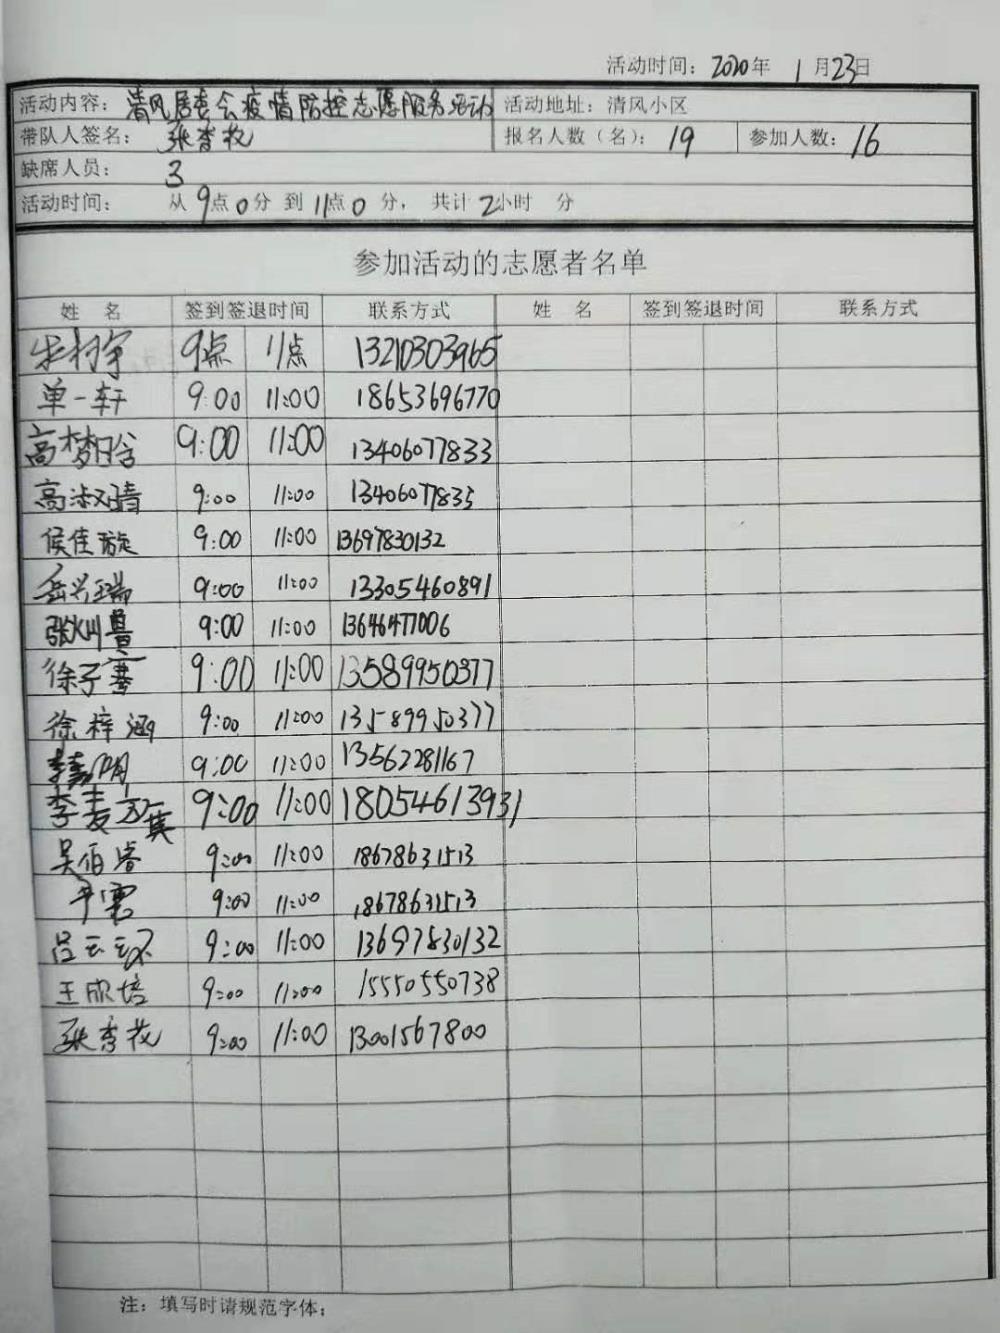 活动时间：2020年 1月23日
活动内容：清风居委会疫情防控志愿服务活动 活动地址：清风小区
带队人签名：张秀花 报名人数（名）：19 参加人数：16
缺席人员：3
活动时间： 从9点0分 到11点0分， 共计2小时 分
参加活动的志愿者名单
姓 名 签到签退时间 联系方式 姓 名 签到签退时间 联系方式
9点 11点 13210303965
单一轩 9:00 11:00 18653696770
高梦晗 9:00 11:00 13406077833
高淑晴 9:00 11:00 13406077833
侯佳璇 9:00 11:00 13697830132
岳兴瑞 9:00 11:00 13305460891
9:00 11:00 13646477006
徐子骞 9:00 11:00 13589950377
徐梓涵 9:00 11:00 13589950377
李嘉明 9:00 11:00 13562281167
9:00 11:00 18054613931
吴伯睿 9:00 11:00 18678631513
9:00 11:00 18678631513
吕云环 9:00 11:00 13697830132
王欣培 9:00 11:00 15550550738
张秀花 9:00 11:00 13001567800
注：填写时请规范字体；